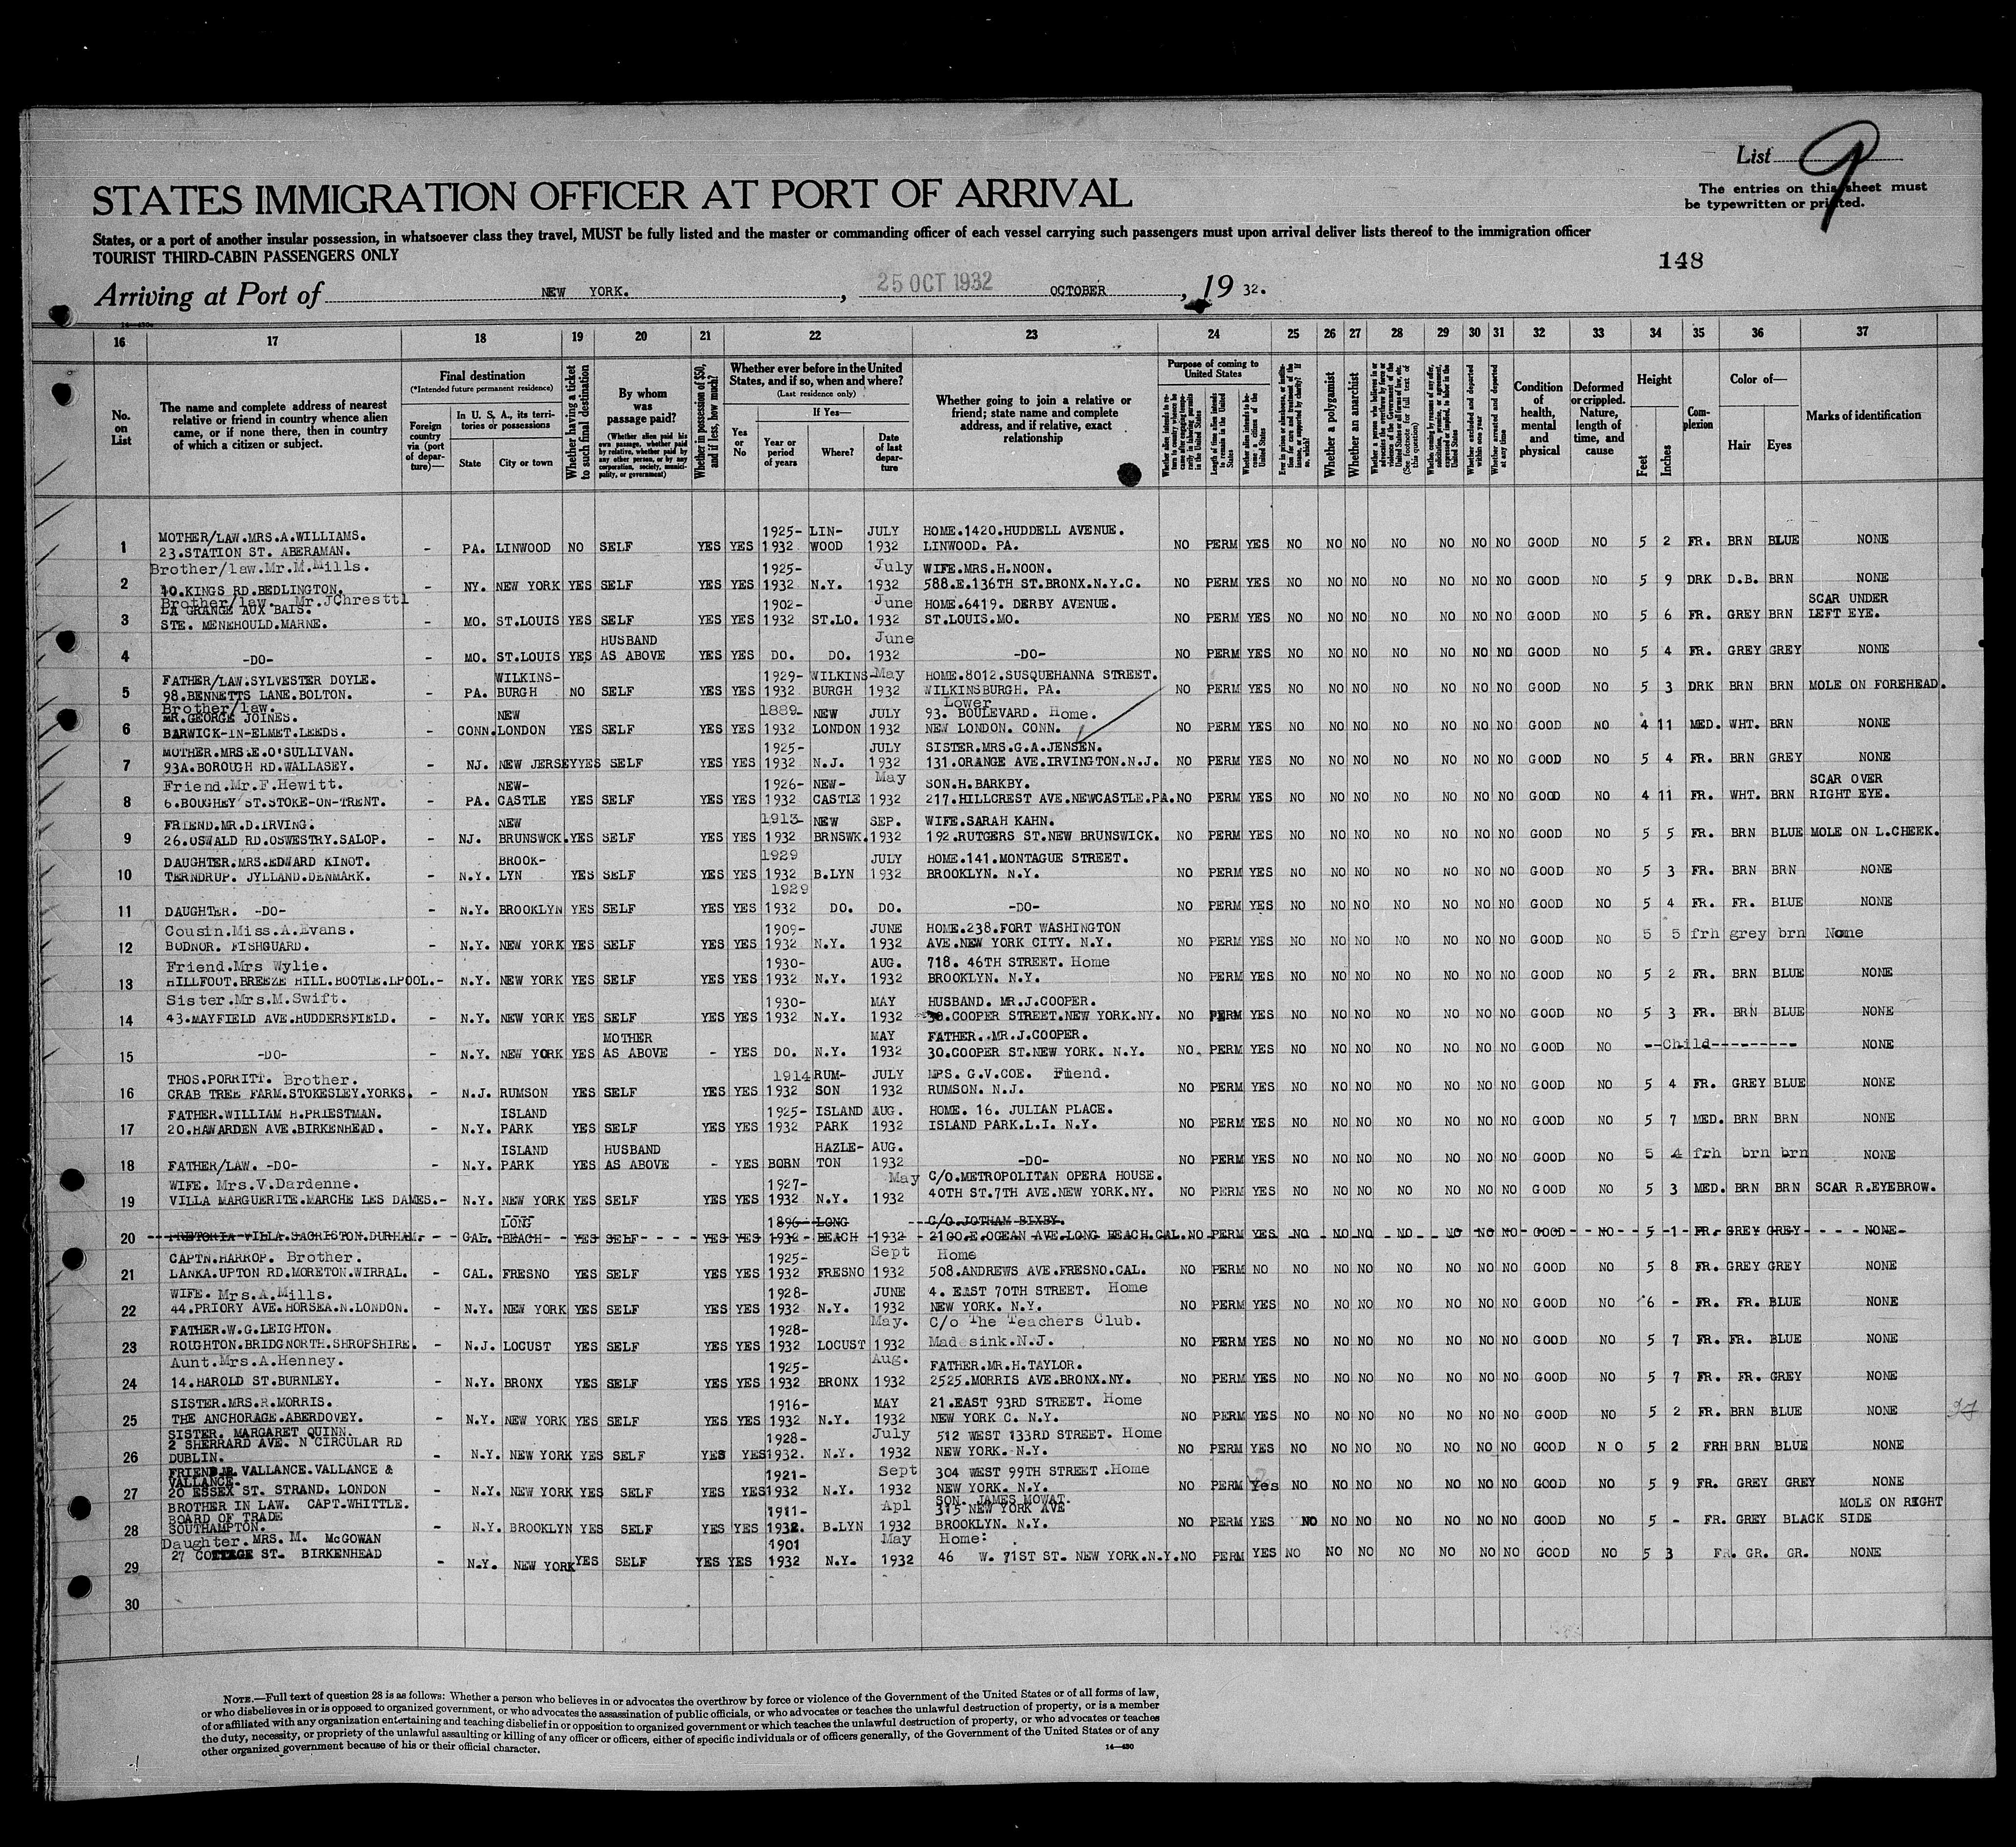 List 9
The entries on this sheet must
be typewritten or printed.
STATES IMMIGRATION OFFICER AT PORT OF ARRIVAL
States, or a port of another insular possession, in whatsoever class they travel, MUST be fully listed and the master or commanding officer of each vessel carrying such passengers must upon arrival deliver lists thereof to the immigration officer
TOURIST THIRD-CABIN PASSENGERS ONLY
148
Arriving at Port of NEW YORK. , 25 OCT 1932 OCTOBER , 19 32.
16 17 18 19 20 21 22 23 24 25 26 27 28 29 30 31 32 33 34 35 36 37
No. on List
The name and complete address of nearest relative or friend in country whence alien came, or if none there, then in country of which a citizen or subject.
Final destination
(*Intended future permanent residence)
Foreign country via (port of departure)—
In U. S. A., its territories or possessions
State
City or town
Whether having a ticket to such final destination
By whom was passage paid?
(Whether alien paid his own passage, whether paid by relative, whether paid by any other person, or by any corporation, society, municipality, or government)
Whether in possession of $50, and if less, how much?
Whether ever before in the United States, and if so, when and where?
(Last residence only)
Yes or No
If Yes—
Year or period of years
Where?
Date of last departure
Whether going to join a relative or friend; state name and complete address, and if relative, exact relationship
Purpose of coming to United States
Whether a polygamist
Whether an anarchist
Whether excluded and deported within one year
Whether arrested and deported at any time
Condition of health, mental and physical
Deformed or crippled. Nature, length of time, and cause
Height
Feet
Inches
Complexion
Color of—
Hair
Eyes
Marks of identification
MOTHER/LAW.MRS.A.WILLIAMS. 1925- LIN- JULY HOME.1420.HUDDELL AVENUE.
1 23.STATION ST. ABERAMAN. - PA. LINWOOD NO SELF YES YES 1932 WOOD 1932 LINWOOD. PA. NO PERM YES NO NO NO NO NO NO NO GOOD NO 5 2 FR. BRN BLUE NONE
Brother/law.Mr.M.Mills. 1925- July WIFE.MRS.H.NOON.
2 10.KINGS RD.BEDLINGTON. - NY. NEW YORK YES SELF YES YES 1932 N.Y. 1932 588.E.136TH ST.BRONX.N.Y.C. NO PERM YES NO NO NO NO NO NO NO GOOD NO 5 9 DRK D.B. BRN NONE
Brother/law. Mr.JChresttl
LA GRANGE AUX BAIS. 1902- June HOME.6419. DERBY AVENUE. SCAR UNDER
3 STE. MENEHOULD.MARNE. - MO. ST.LOUIS YES SELF YES YES 1932 ST.LO. 1932 ST.LOUIS.MO. NO PERM YES NO NO NO NO NO NO NO GOOD NO 5 6 FR. GREY BRN LEFT EYE.
HUSBAND June
4 -DO- - MO. ST.LOUIS YES AS ABOVE YES YES DO. DO. 1932 -DO- NO PERM YES NO NO NO NO NO NO NO GOOD NO 5 4 FR. GREY GREY NONE
FATHER/LAW.SYLVESTER DOYLE. WILKINS- 1929- WILKINS- May HOME.8012.SUSQUEHANNA STREET.
5 98.BENNETTS LANE.BOLTON. - PA. BURGH NO SELF YES YES 1932 BURGH 1932 WILKINSBURGH. PA. NO PERM YES NO NO NO NO NO NO NO GOOD NO 5 3 DRK BRN BRN MOLE ON FOREHEAD.
Brother/law. Lower
MR.GEORGE JOINES. NEW 1889- NEW JULY 93. BOULEVARD. Home.
6 BARWICK-IN-ELMET.LEEDS. - CONN. LONDON YES SELF YES YES 1932 LONDON 1932 NEW LONDON. CONN. NO PERM YES NO NO NO NO NO NO NO GOOD NO 4 11 MED. WHT. BRN NONE
MOTHER.MRS.E.O'SULLIVAN. 1925- JULY SISTER.MRS.G.A.JENSEN.
7 93A.BOROUGH RD.WALLASEY. - NJ. NEW JERSEY YES SELF YES YES 1932 N.J. 1932 131.ORANGE AVE.IRVINGTON.N.J. NO PERM YES NO NO NO NO NO NO NO GOOD NO 5 4 FR. BRN GREY NONE
Friend.Mr.F.Hewitt. NEW- 1926- NEW- May SON.H.BARKBY. SCAR OVER
8 6.BOUGHEY ST.STOKE-ON-TRENT. - PA. CASTLE YES SELF YES YES 1932 CASTLE 1932 217.HILLCREST AVE.NEWCASTLE.PA. NO PERM YES NO NO NO NO NO NO NO GOOD NO 4 11 FR. WHT. BRN RIGHT EYE.
FRIEND.MR.D.IRVING. NEW 1913- NEW SEP. WIFE.SARAH KAHN.
9 26.OSWALD RD.OSWESTRY.SALOP. - NJ. BRUNSWCK. YES SELF YES YES 1932 BRNSWK. 1932 192.RUTGERS ST.NEW BRUNSWICK. NO PERM YES NO NO NO NO NO NO NO GOOD NO 5 5 FR. BRN BLUE MOLE ON L.CHEEK.
DAUGHTER.MRS.EDWARD KINOT. BROOK- 1929 JULY HOME.141.MONTAGUE STREET.
10 TERNDRUP. JYLLAND.DENMARK. - N.Y. LYN YES SELF YES YES 1932 B.LYN 1932 BROOKLYN. N.Y. NO PERM YES NO NO NO NO NO NO NO GOOD NO 5 3 FR. BRN BRN NONE
1929
11 DAUGHTER. -DO- - N.Y. BROOKLYN YES SELF YES YES 1932 DO. DO. -DO- NO PERM YES NO NO NO NO NO NO NO GOOD NO 5 4 FR. FR. BLUE NONE
Cousin.Miss.A.Evans. 1909- JUNE HOME.238.FORT WASHINGTON
12 BODNOR. FISHGUARD. - N.Y. NEW YORK YES SELF YES YES 1932 N.Y. 1932 AVE.NEW YORK CITY. N.Y. NO PERM YES NO NO NO NO NO NO NO GOOD NO 5 5 frh grey brn None
Friend.Mrs Wylie. 1930- AUG. 718. 46TH STREET. Home
13 HILLFOOT.BREEZE HILL.BOOTLE.LPOOL. - N.Y. NEW YORK YES SELF YES YES 1932 N.Y. 1932 BROOKLYN. N.Y. NO PERM YES NO NO NO NO NO NO NO GOOD NO 5 2 FR. BRN BLUE NONE
Sister.Mrs.M.Swift. 1930- MAY HUSBAND. MR.J.COOPER.
14 43.MAYFIELD AVE.HUDDERSFIELD. - N.Y. NEW YORK YES SELF YES YES 1932 N.Y. 1932 30.COOPER STREET.NEW YORK.NY. NO PERM YES NO NO NO NO NO NO NO GOOD NO 5 3 FR. BRN BLUE NONE
MOTHER MAY FATHER. MR.J.COOPER.
15 -DO- - N.Y. NEW YORK YES AS ABOVE - YES DO. N.Y. 1932 30.COOPER ST.NEW YORK. N.Y. NO. PERM YES NO NO NO NO NO NO NO GOOD NO --Child--------- NONE
THOS.PORRITT. Brother. 1914 RUM- JULY MRS. G.V.COE. Friend.
16 CRAB TREE FARM.STOKESLEY.YORKS. - N.J. RUMSON YES SELF YES YES 1932 SON 1932 RUMSON. N.J. NO PERM YES NO NO NO NO NO NO NO GOOD NO 5 4 FR. GREY BLUE NONE
FATHER.WILLIAM H.PRIESTMAN. ISLAND 1925- ISLAND AUG. HOME. 16. JULIAN PLACE.
17 20.HAWARDEN AVE.BIRKENHEAD. - N.Y. PARK YES SELF YES YES 1932 PARK 1932 ISLAND PARK.L.I. N.Y. NO PERM YES NO NO NO NO NO NO NO GOOD NO 5 7 MED. BRN BRN NONE
ISLAND HUSBAND HAZLE- AUG.
18 FATHER/LAW. -DO- - N.Y. PARK YES AS ABOVE - YES BORN TON 1932 -DO- NO PERM YES NO NO NO NO NO NO NO GOOD NO 5 4 frh brn brn NONE
WIFE. Mrs.V.Dardenne. 1927- May C/O.METROPOLITAN OPERA HOUSE.
19 VILLA MARGUERITE.MARCHE LES DAMES. - N.Y. NEW YORK YES SELF YES YES 1932 N.Y. 1932 40TH ST.7TH AVE.NEW YORK.NY. NO PERM YES NO NO NO NO NO NO NO GOOD NO 5 3 MED. BRN BRN SCAR R.EYEBROW.
LONG 1896- LONG C/O.JOTHAM BIXBY.
20 PRETORIA VILLA.SACRISTON.DURHAM. - CAL. BEACH YES SELF YES YES 1932 BEACH 1932 2100.E.OCEAN AVE.LONG BEACH.CAL. NO PERM YES NO NO NO NO NO NO NO GOOD NO 5 1 FR. GREY GREY NONE
CAPTN.HARROP. Brother. 1925- Sept Home
21 LANKA.UPTON RD.MORETON.WIRRAL. - CAL. FRESNO YES SELF YES YES 1932 FRESNO 1932 508.ANDREWS AVE.FRESNO.CAL. NO PERM NO NO NO NO NO NO NO NO GOOD NO 5 8 FR. GREY GREY NONE
WIFE. Mrs.A.Mills. 1928- JUNE 4. EAST 70TH STREET. Home
22 44.PRIORY AVE.HORSEA.N.LONDON. - N.Y. NEW YORK YES SELF YES YES 1932 N.Y. 1932 NEW YORK. N.Y. NO PERM YES NO NO NO NO NO NO NO GOOD NO 6 - FR. FR. BLUE NONE
FATHER.W.G.LEIGHTON. 1928- May. C/o The Teachers Club.
23 ROUGHTON.BRIDGNORTH.SHROPSHIRE. - N.J. LOCUST YES SELF YES YES 1932 LOCUST 1932 Mad sink.N.J. NO PERM YES NO NO NO NO NO NO NO GOOD NO 5 7 FR. FR. BLUE NONE
Aunt.Mrs.A.Henney. 1925- Aug. FATHER.MR.H.TAYLOR.
24 14.HAROLD ST.BURNLEY. - N.Y. BRONX YES SELF YES YES 1932 BRONX 1932 2525.MORRIS AVE.BRONX.NY. NO PERM YES NO NO NO NO NO NO NO GOOD NO 5 7 FR. FR. GREY NONE
SISTER.MRS.R.MORRIS. 1916- MAY 21.EAST 93RD STREET. Home
25 THE ANCHORAGE.ABERDOVEY. - N.Y. NEW YORK YES SELF YES YES 1932 N.Y. 1932 NEW YORK C. N.Y. NO PERM YES NO NO NO NO NO NO NO GOOD NO 5 2 FR. BRN BLUE NONE
SISTER. MARGARET QUINN.
2 SHERRARD AVE. N CIRCULAR RD 1928- July 512 WEST 133RD STREET. Home
26 DUBLIN. - N.Y. NEW YORK YES SELF YES YES 1932. N.Y. 1932 NEW YORK. N.Y. NO PERM YES NO NO NO NO NO NO NO GOOD N O 5 2 FRH BRN BLUE NONE
FRIEND VALLANCE.VALLANCE &
VALLANCE. 1921- Sept 304 WEST 99TH STREET .Home
27 20 ESSEX ST. STRAND. LONDON - N.Y. NEW YORK YES SELF YES YES 1932 N.Y. 1932 NEW YORK. N.Y. NO PERM Yes NO NO NO NO NO NO NO GOOD NO 5 9 FR. GREY GREY NONE
BROTHER IN LAW. CAPT.WHITTLE. SON. JAMES MOWAT. MOLE ON RIGHT
BOARD OF TRADE 1911- Apl 315 NEW YORK AVE
28 SOUTHAMPTON. - N.Y. BROOKLYN YES SELF YES YES 1932. B.LYN 1932 BROOKLYN. N.Y. NO PERM YES NO NO NO NO NO NO NO GOOD NO 5 - FR. GREY BLACK SIDE
Daughter. MRS. M. McGOWAN 1901 May Home:
27 COTTAGE ST. BIRKENHEAD
29 - N.Y. NEW YORK YES SELF YES YES 1932 N.Y. 1932 46 W. 71ST ST. NEW YORK.N.Y. NO PERM YES NO NO NO NO NO NO NO GOOD NO 5 3 FR. GR. GR. NONE
30
NOTE.—Full text of question 28 is as follows: Whether a person who believes in or advocates the overthrow by force or violence of the Government of the United States or of all forms of law,
or who disbelieves in or is opposed to organized government, or who advocates the assassination of public officials, or who advocates or teaches the unlawful destruction of property, or is a member
of or affiliated with any organization entertaining and teaching disbelief in or opposition to organized government or which teaches the unlawful destruction of property, or who advocates or teaches
the duty, necessity, or propriety of the unlawful assaulting or killing of any officer or officers, either of specific individuals or of officers generally, of the Government of the United States or of any
other organized government because of his or their official character.
14—430